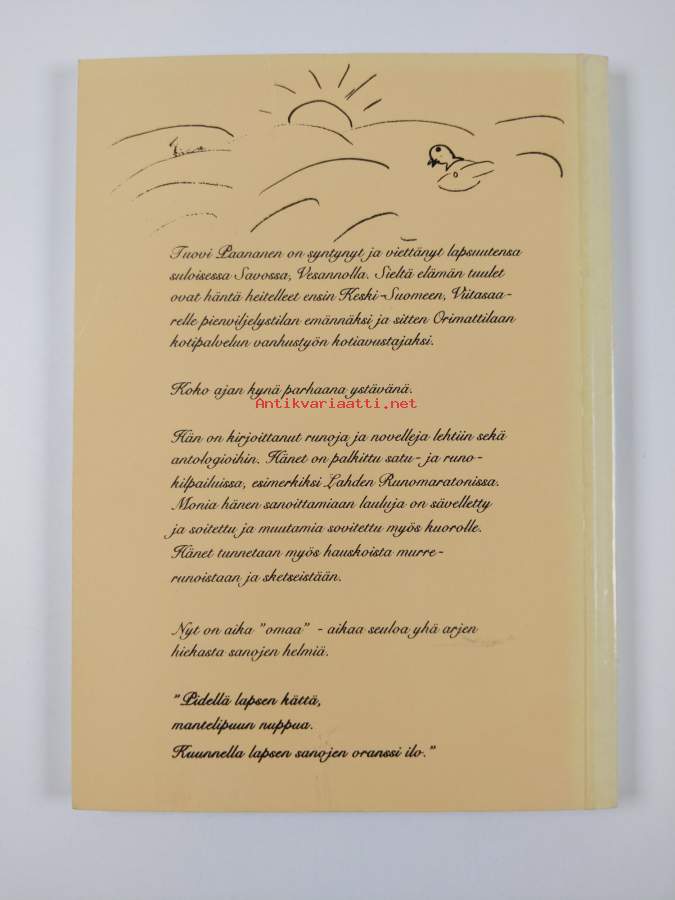 Tuovi Paananen on syntynyt ja viettänyt lapsuutensa
suloisessa Savossa, Vesannolla. Sieltä elämän tuulet
ovat häntä heitelleet ensin Keski-Suomeen, Viitasaa-
relle pienviljelystilan emännäksi ja sitten Orimattilaan
kotipalvelun vanhustyön kotiavustajaksi.
Koko ajan kynä parhaana ystävänä.
Antikvariaatti.net
Hän on kirjoittanut runoja ja novelleja lehtiin sekä
antologioihin. Hänet on palkittu satu- ja runo-
kilpailuissa, esimerkiksi Lahden Runomaratonissa.
Monia hänen sanoittamiaan lauluja on sävelletty
ja soitettu ja muutamia sovitettu myös kuorolle.
Hänet tunnetaan myös hauskoista murre-
runoistaan ja sketseistään.
Nyt on aika "omaa" - aikaa seuloa yhä arjen
hiekasta sanojen helmiä.
"Pidellä lapsen kättä,
mantelipuun nuppua.
Kuunnella lapsen sanojen oranssi ilo."